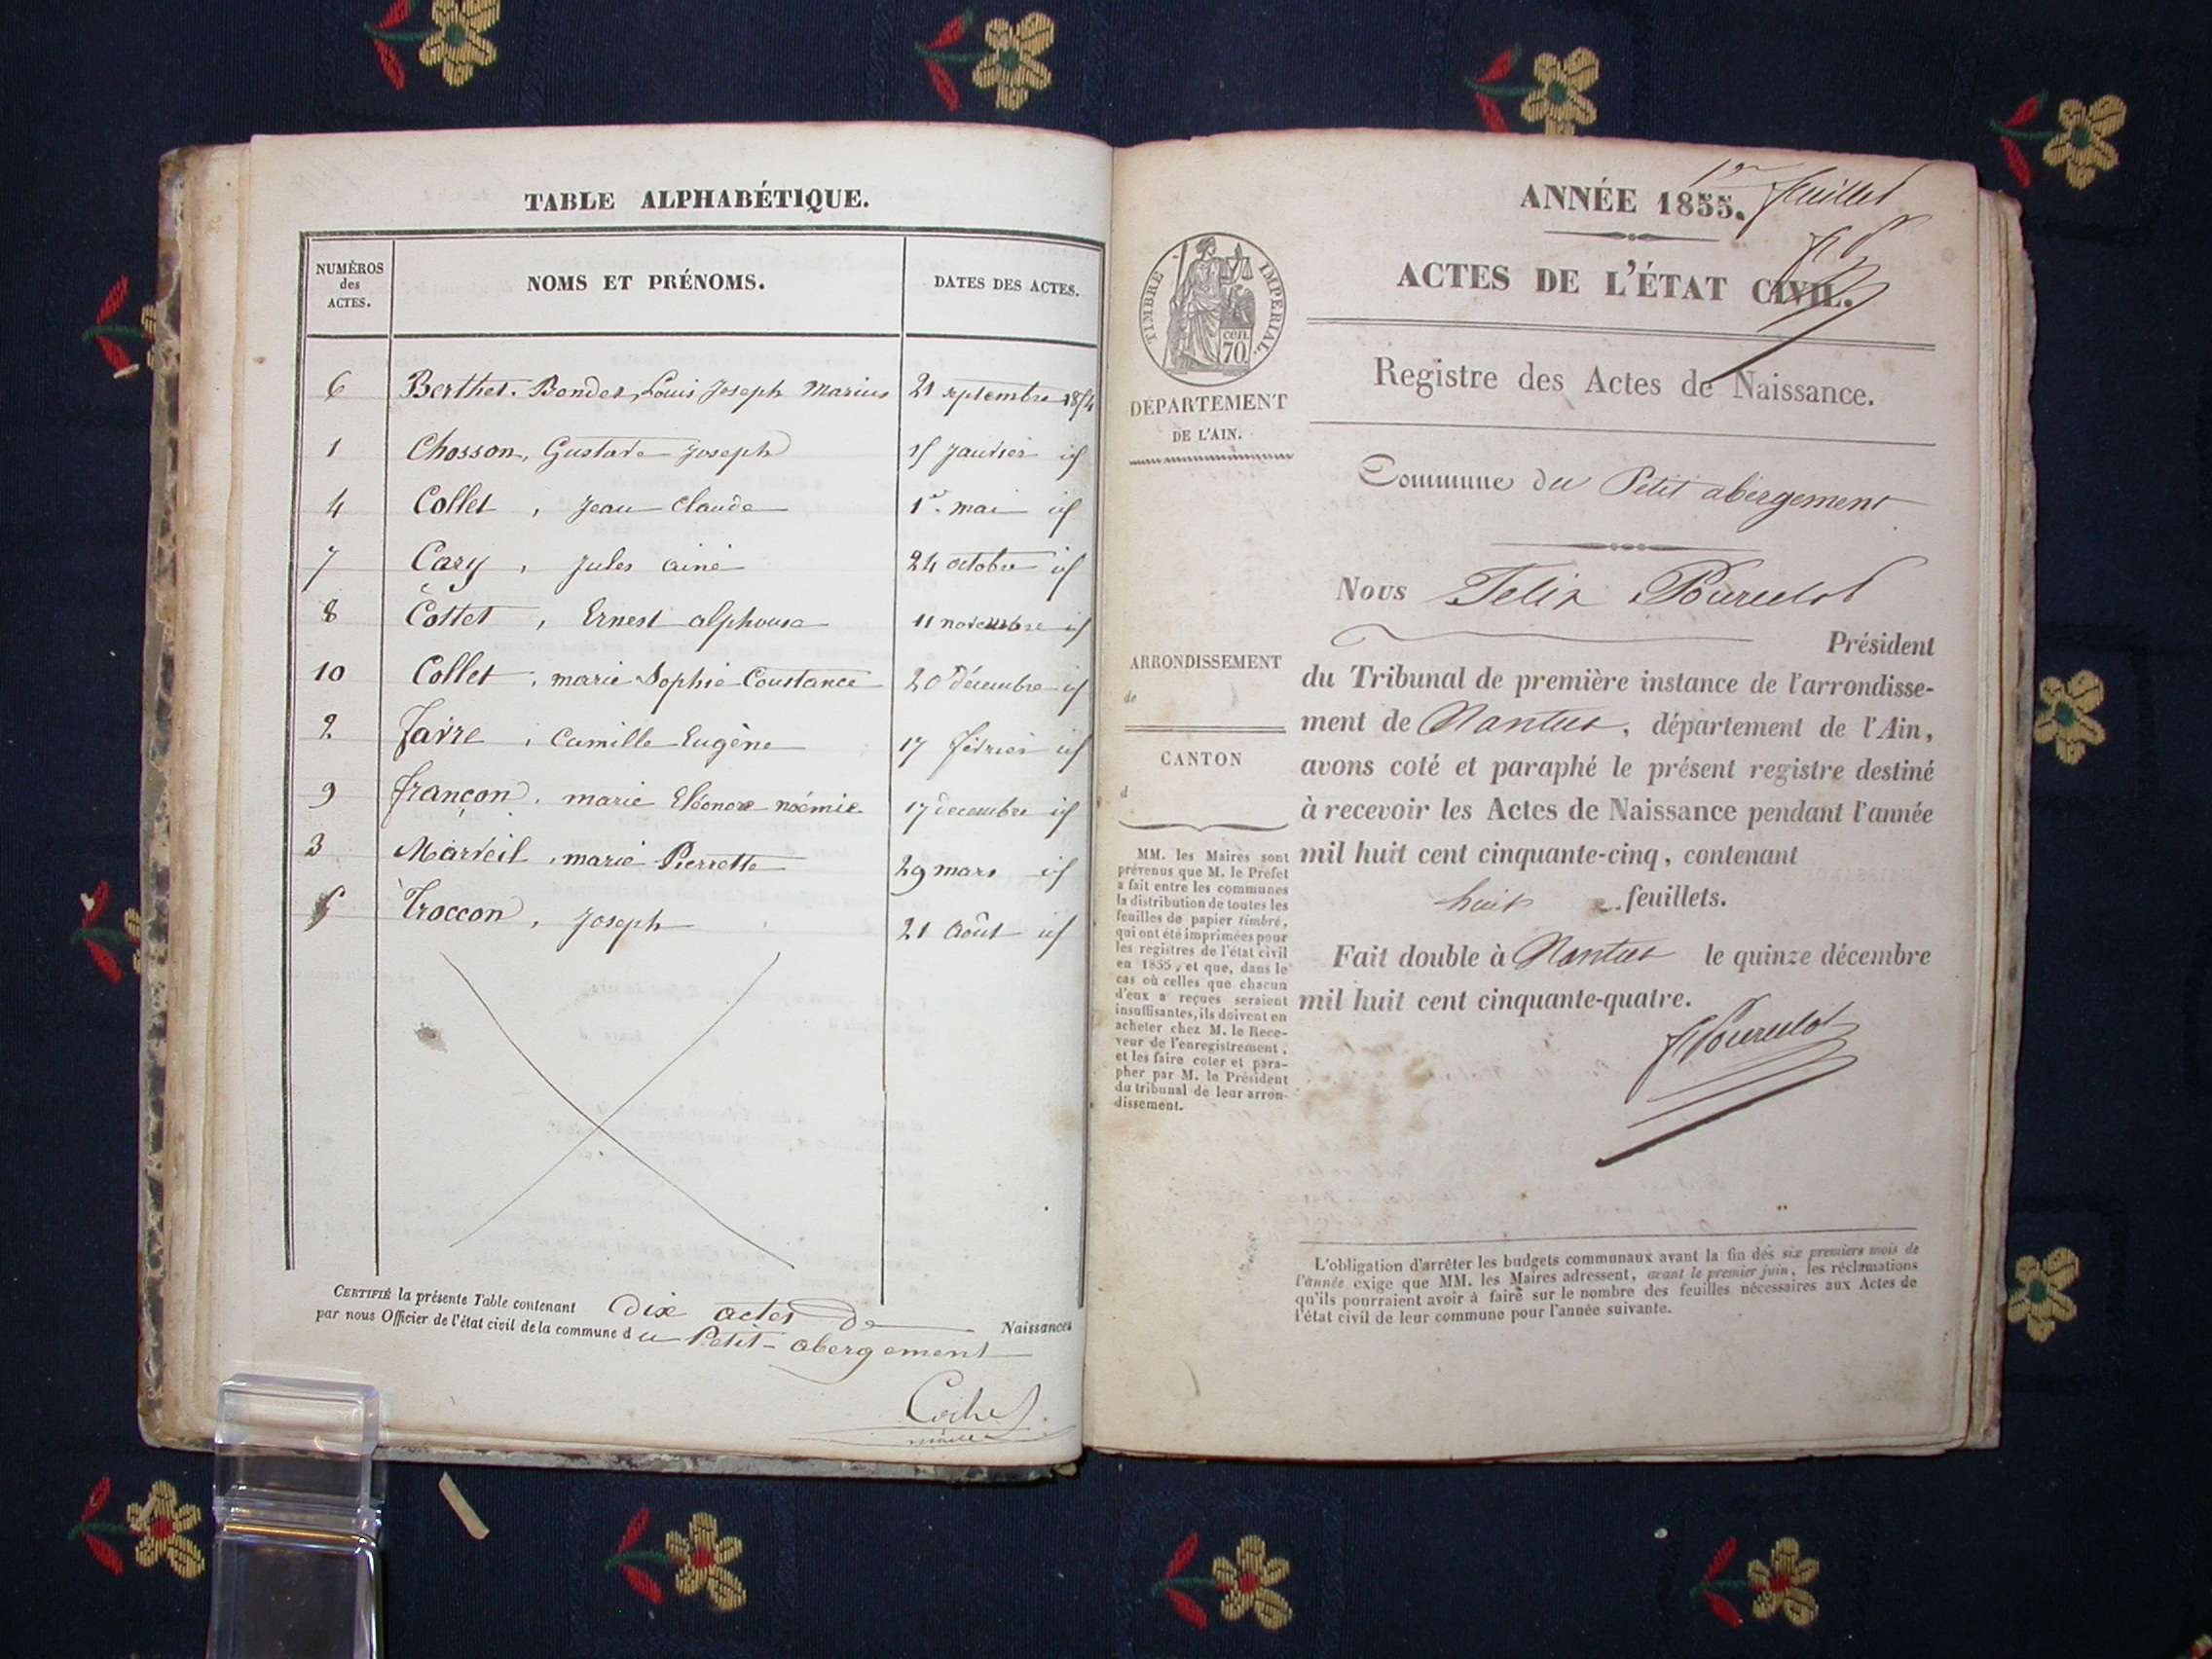 TABLE ALPHABÉTIQUE.
NUMÉROS des ACTES.
NOMS ET PRÉNOMS.
DATES DES ACTES.
6 Berthet-Bondet, Louis Joseph Marius 21 septembre 1854
1 Chosson, Gustave Joseph 15 janvier id
4 Collet, Jean Claude 1er mai id
7 Cary, Jules ainé 24 octobre id
8 Cottet, Ernest alphonse 11 novembre id
10 Collet, marie Sophie Constance 20 décembre id
2 favre, Camille Eugène 17 février id
9 françon, marie Eléonore noémie 17 décembre id
3 Marveil, marie Pierrette 29 mars id
5 Troccon, Joseph 21 Août id
CERTIFIÉ la présente Table contenant dix actes de Naissances
par nous Officier de l'état civil de la commune du Petit-abergement
maire
1er feuillet
ANNÉE 1855.
ACTES DE L'ÉTAT CIVIL.
TIMBRE IMPERIAL.
cen. 70
DÉPARTEMENT
DE L'AIN.
Registre des Actes de Naissance.
Commune du Petit abergement
Nous Felix Pourcelot
Président
du Tribunal de première instance de l'arrondisse-
ment de Nantua, département de l'Ain,
avons coté et paraphé le présent registre destiné
à recevoir les Actes de Naissance pendant l'année
mil huit cent cinquante-cinq, contenant
huit feuillets.
Fait double à Nantua le quinze décembre
mil huit cent cinquante-quatre.
FPourcelot
ARRONDISSEMENT
de
CANTON
d
MM. les Maires sont
prévenus que M. le Préfet
a fait entre les communes
la distribution de toutes les
feuilles de papier timbré,
qui ont été imprimées pour
les registres de l'état civil
en 1855, et que, dans le
cas où celles que chacun
d'eux a reçues seraient
insuffisantes, ils doivent en
acheter chez M. le Rece-
veur de l'enregistrement,
et les faire coter et para-
pher par M. le Président
du tribunal de leur arron-
dissement.
L'obligation d'arrêter les budgets communaux avant la fin des six premiers mois de
l'année exige que MM. les Maires adressent, avant le premier juin, les réclamations
qu'ils pourraient avoir à faire sur le nombre des feuilles nécessaires aux Actes de
l'état civil de leur commune pour l'année suivante.